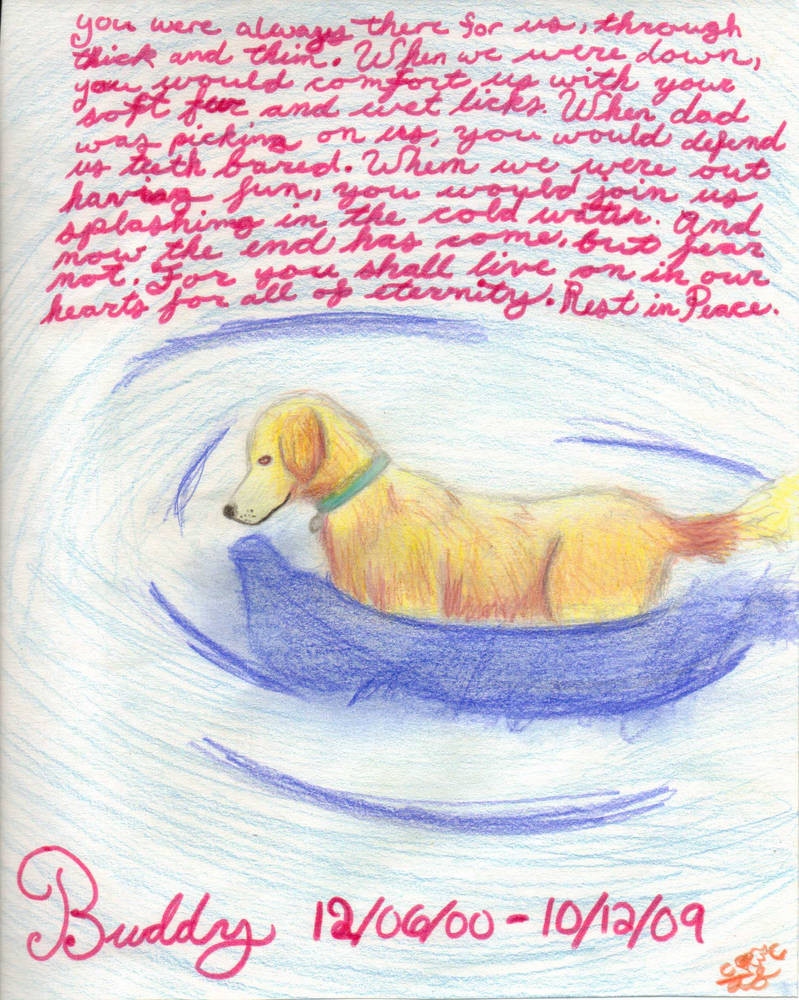 you were always there for us, through
thick and thin. When we were down,
you would comfort us with your
soft fur and wet licks. When dad
was picking on us, you would defend
us teeth bared. When we were out
having fun, you would join us
splashing in the cold water. And
now the end has come, but fear
not. For you shall live on in our
hearts for all of eternity. Rest in Peace.
Buddy 12/06/00 - 10/12/09